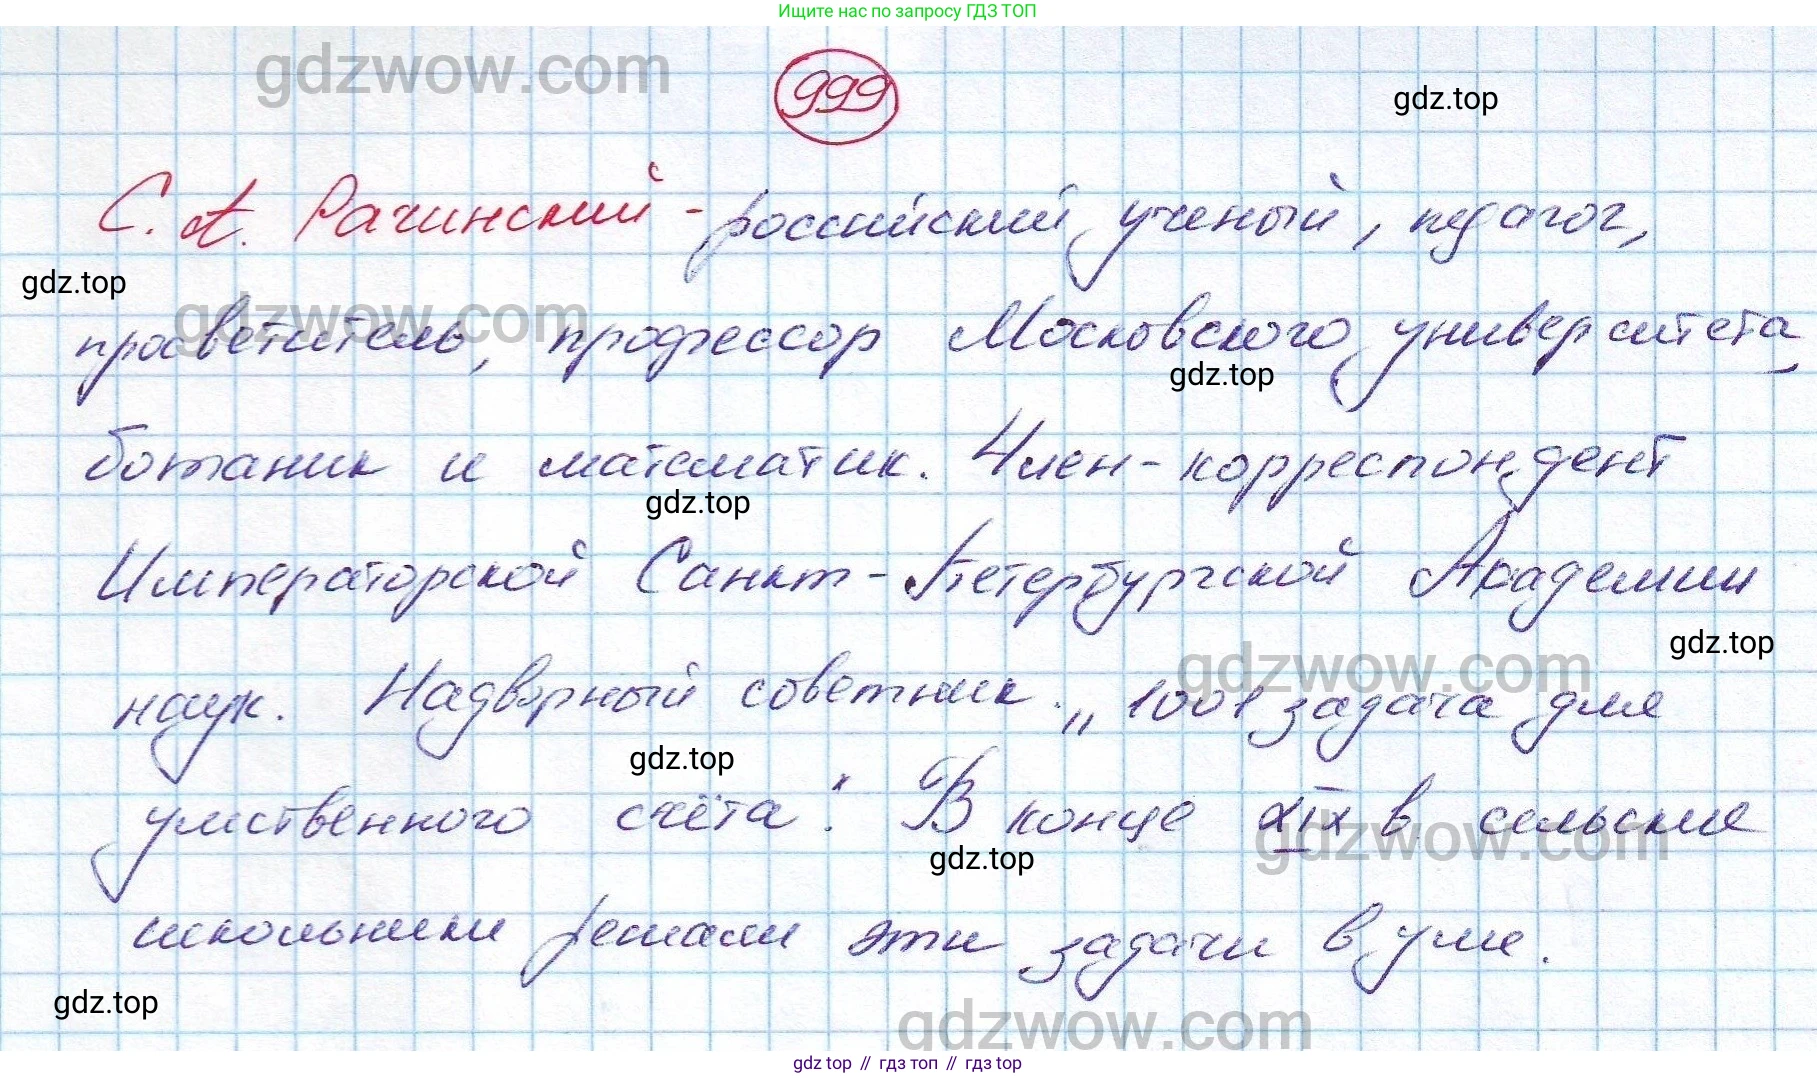 Ищите нас по запросу ГДЗ ТОП
gdzwow.com
999
gdz.top
С. А. Рачинский - российский ученый, педагог,
gdz.top
gdzwow.com
просветитель, профессор Московского университета,
gdz.top
ботаник и математик. Член-корреспондент
gdz.top
Императорской Санкт-Петербургской Академии
gdz.top
gdzwow.com
наук. Надворный советник. „1001 задача для
gdz.top
умственного счёта". В конце XIX в сельские
gdzwow.com
gdz.top
школьники решали эти задачи в уме.
gdz.top
gdzwow.com
gdz top // гдз топ // гдз top